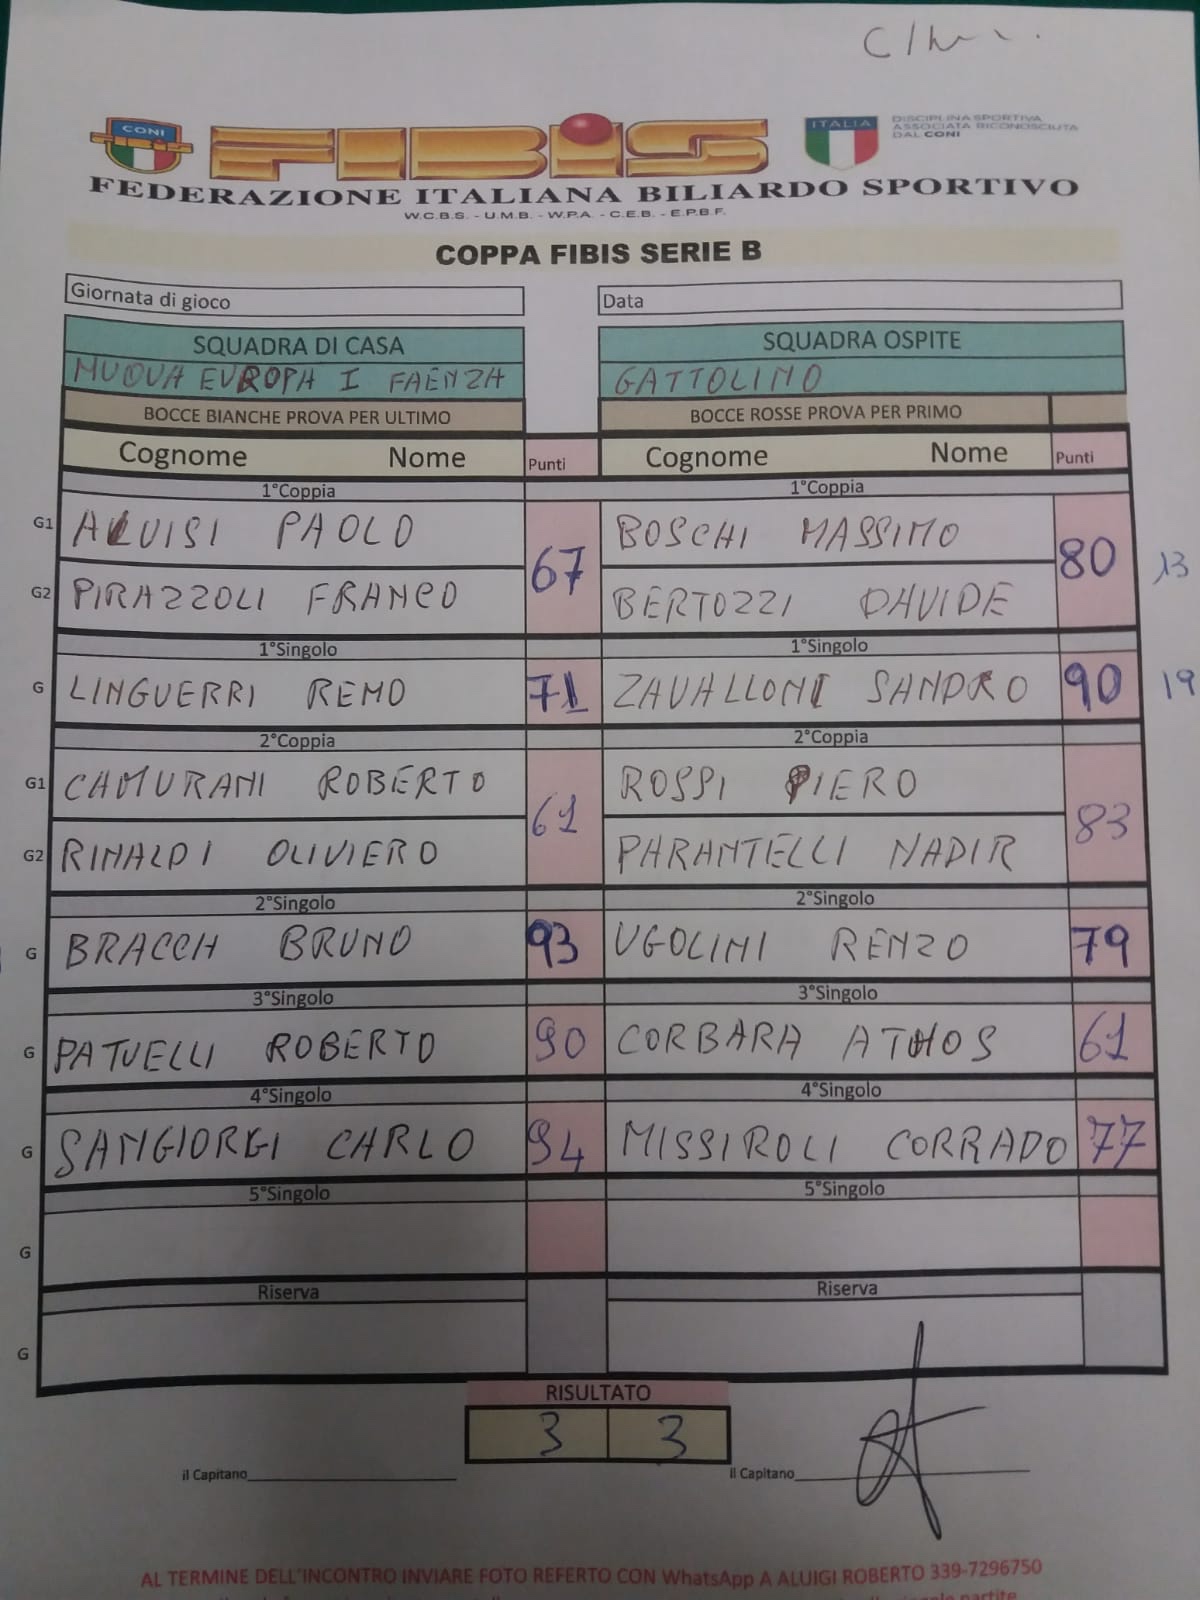 CONI
FIBIS
ITALIA
DISCIPLINA SPORTIVA
ASSOCIATA RICONOSCIUTA
DAL CONI
FEDERAZIONE ITALIANA BILIARDO SPORTIVO
W.C.B.S. - U.M.B. - W.P.A. - C.E.B. - E.P.B.F.
COPPA FIBIS SERIE B
Giornata di gioco Data
SQUADRA DI CASA SQUADRA OSPITE
NUOVA EUROPA I FAENZA GATTOLINO
BOCCE BIANCHE PROVA PER ULTIMO BOCCE ROSSE PROVA PER PRIMO
Cognome Nome Punti Cognome Nome Punti
1°Coppia 1°Coppia
G1 ALUISI PAOLO 67 BOSCHI MASSIMO 80 13
G2 PIRAZZOLI FRANCO BERTOZZI DAVIDE
1°Singolo 1°Singolo
G LINGUERRI REMO 71 ZAVALLONI SANDRO 90 19
2°Coppia 2°Coppia
G1 CAMURANI ROBERTO 61 ROSSI PIERO 83
G2 RINALDI OLIVIERO PARANTELLI NADIR
2°Singolo 2°Singolo
G BRACCH BRUNO 93 UGOLINI RENZO 79
3°Singolo 3°Singolo
G PATUELLI ROBERTO 90 CORBARA ATHOS 61
4°Singolo 4°Singolo
G SANGIORGI CARLO 94 MISSIROLI CORRADO 77
5°Singolo 5°Singolo
G
Riserva Riserva
G
RISULTATO
3 3
il Capitano il Capitano
AL TERMINE DELL'INCONTRO INVIARE FOTO REFERTO CON WhatsApp A ALUIGI ROBERTO 339-7296750